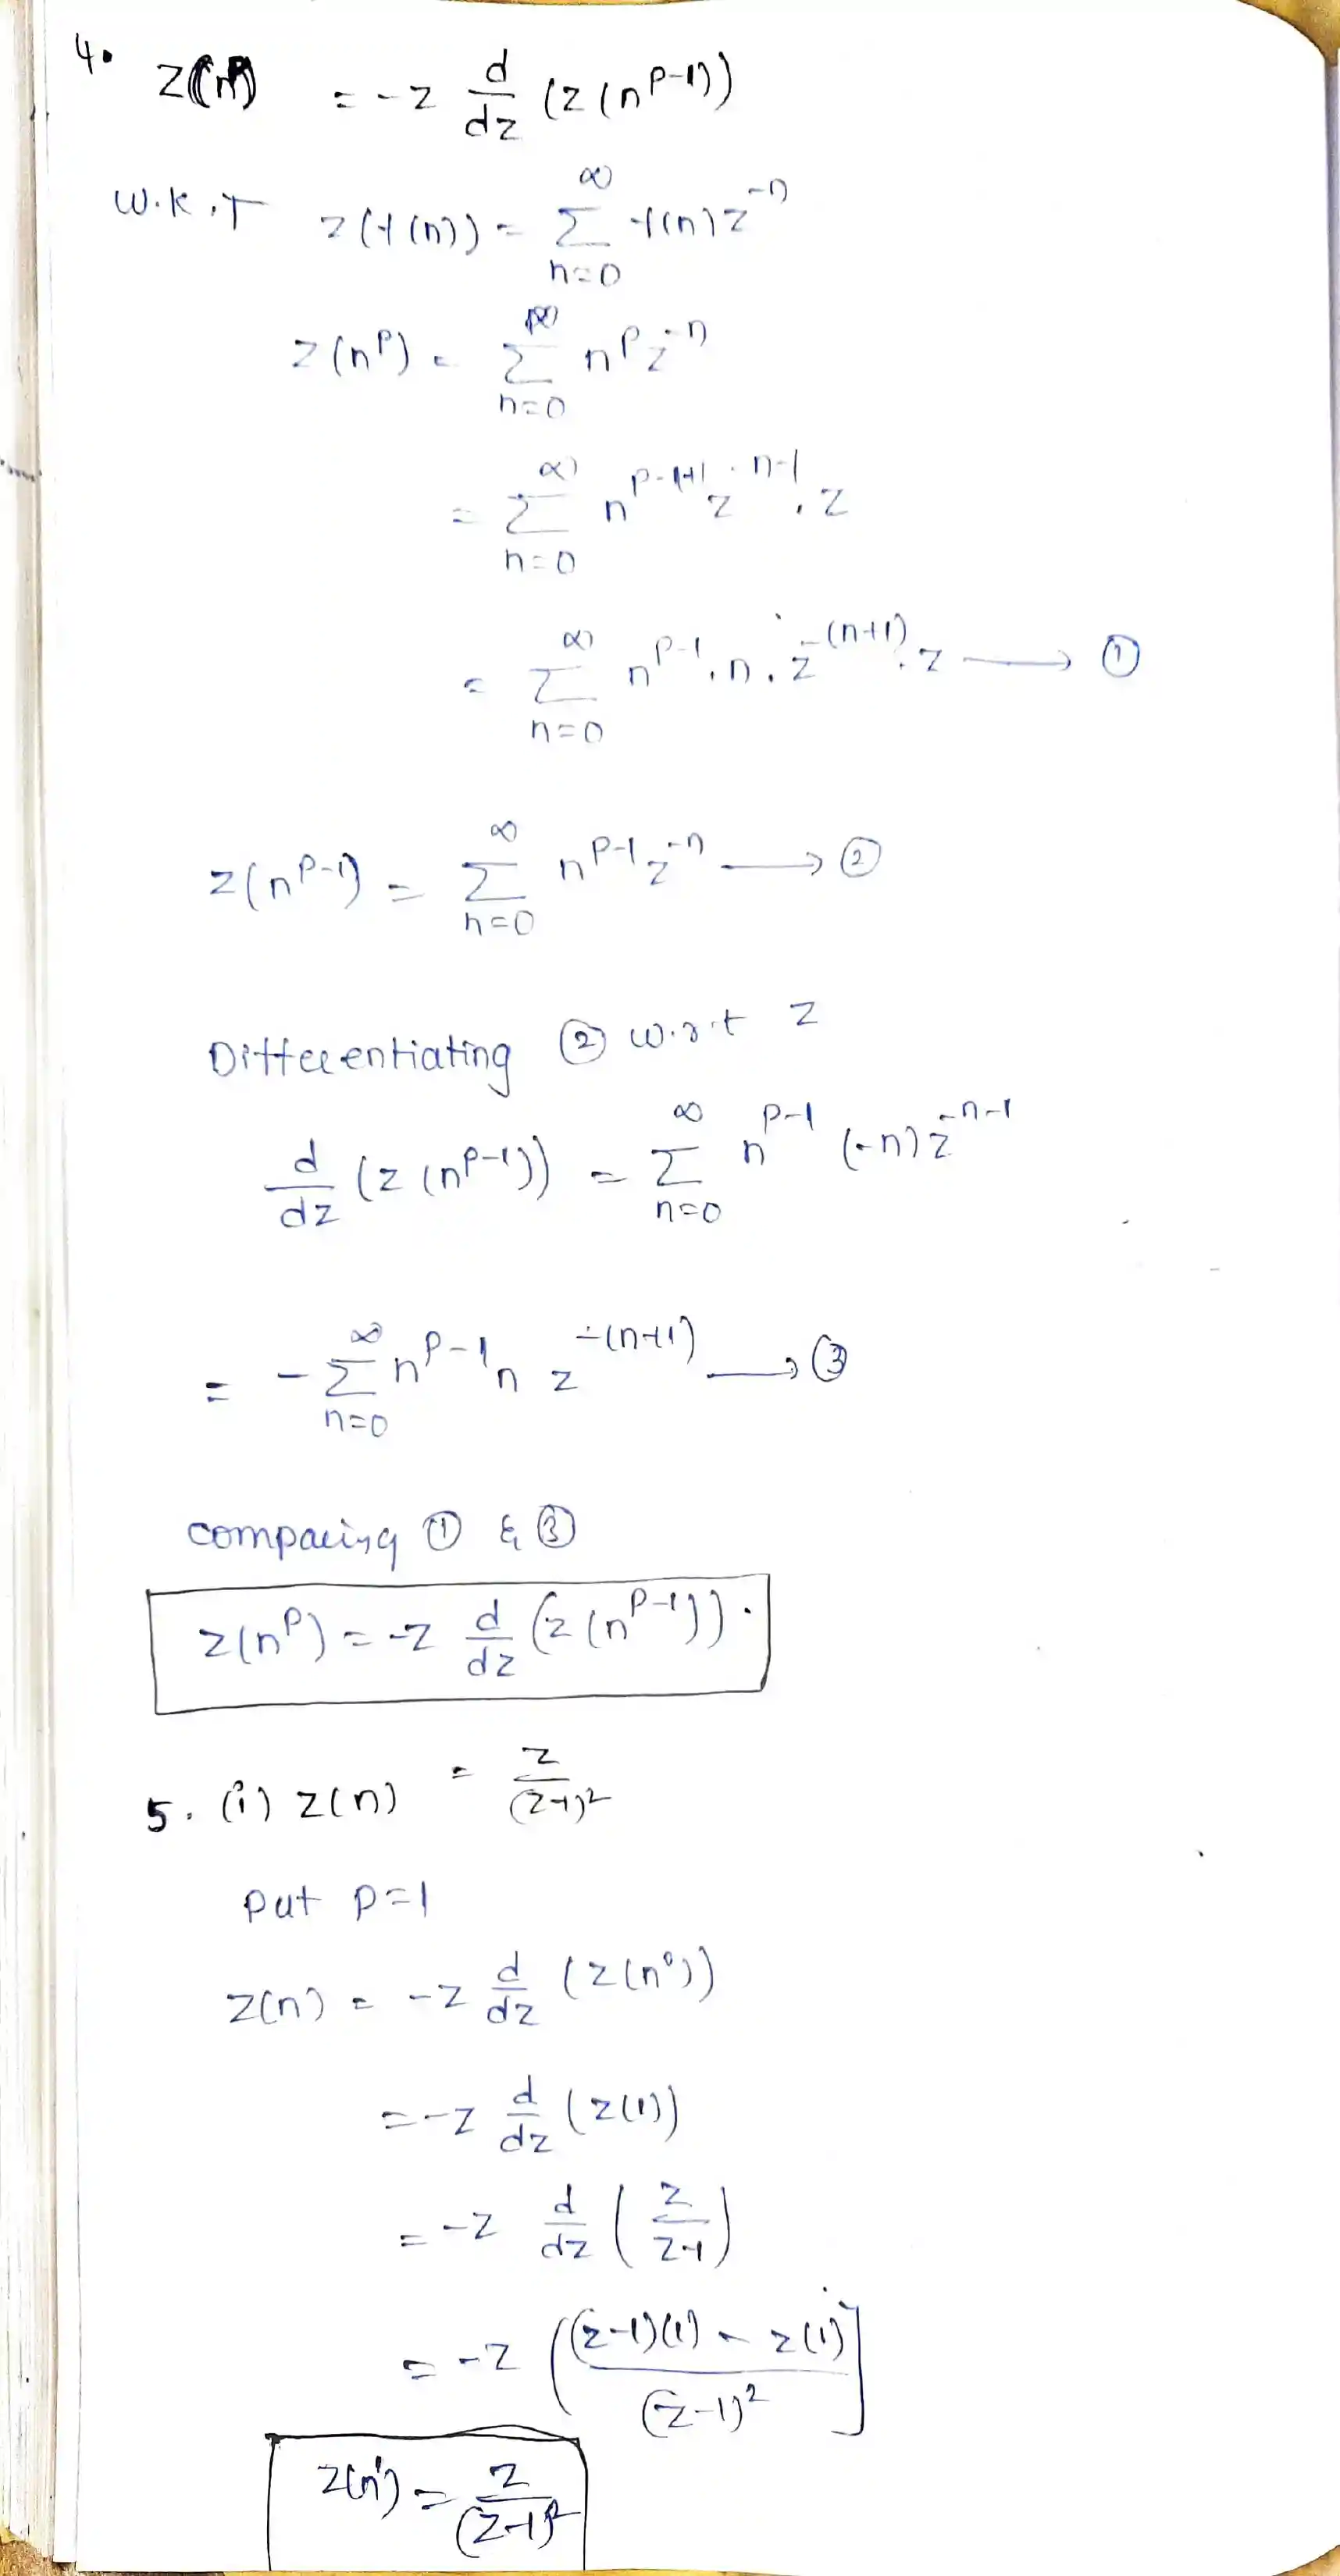 4. Z(n^p) = -z d/dz (z(n^{p-1}))
W.K.T z(f(n)) = ∑_{n=0}^{∞} f(n) z^{-n}
z(n^p) = ∑_{n=0}^{∞} n^p z^{-n}
= ∑_{n=0}^{∞} n^{p-1+1} z^{-n-1} . z
= ∑_{n=0}^{∞} n^{p-1} . n . z^{-(n+1)} . z ⟶ ①
z(n^{p-1}) = ∑_{n=0}^{∞} n^{p-1} z^{-n} ⟶ ②
Differentiating ② w.r.t z
d/dz (z(n^{p-1})) = ∑_{n=0}^{∞} n^{p-1} (-n) z^{-n-1}
= - ∑_{n=0}^{∞} n^{p-1} n z^{-(n+1)} ⟶ ③
comparing ① & ③
z(n^p) = -z d/dz (z(n^{p-1})).
5. (i) z(n) = z/(z-1)^2
put p=1
z(n) = -z d/dz (z(n^0))
= -z d/dz (z(1))
= -z d/dz (z/(z-1))
= -z (((z-1)(1) - z(1))/(z-1)^2]
z(n') = z/(z-1)^2